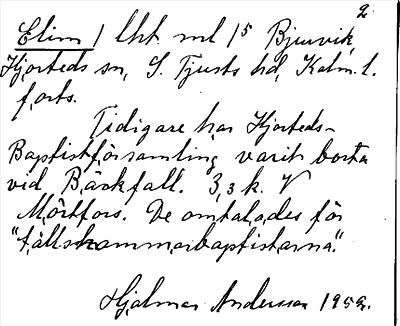 2.
Elim / lht ml 15 Bjurvik,
Hjorteds sn, S. Tjusts hd, Kalm. l.
forts.
Tidigare har Hjorteds-
Baptistförsamling varit borta
vid Bäckfall. 3,3 k. V
Mörtfors. De omtalades för
"fällskammarbaptisterna".
Hjalmar Andersson 1952.